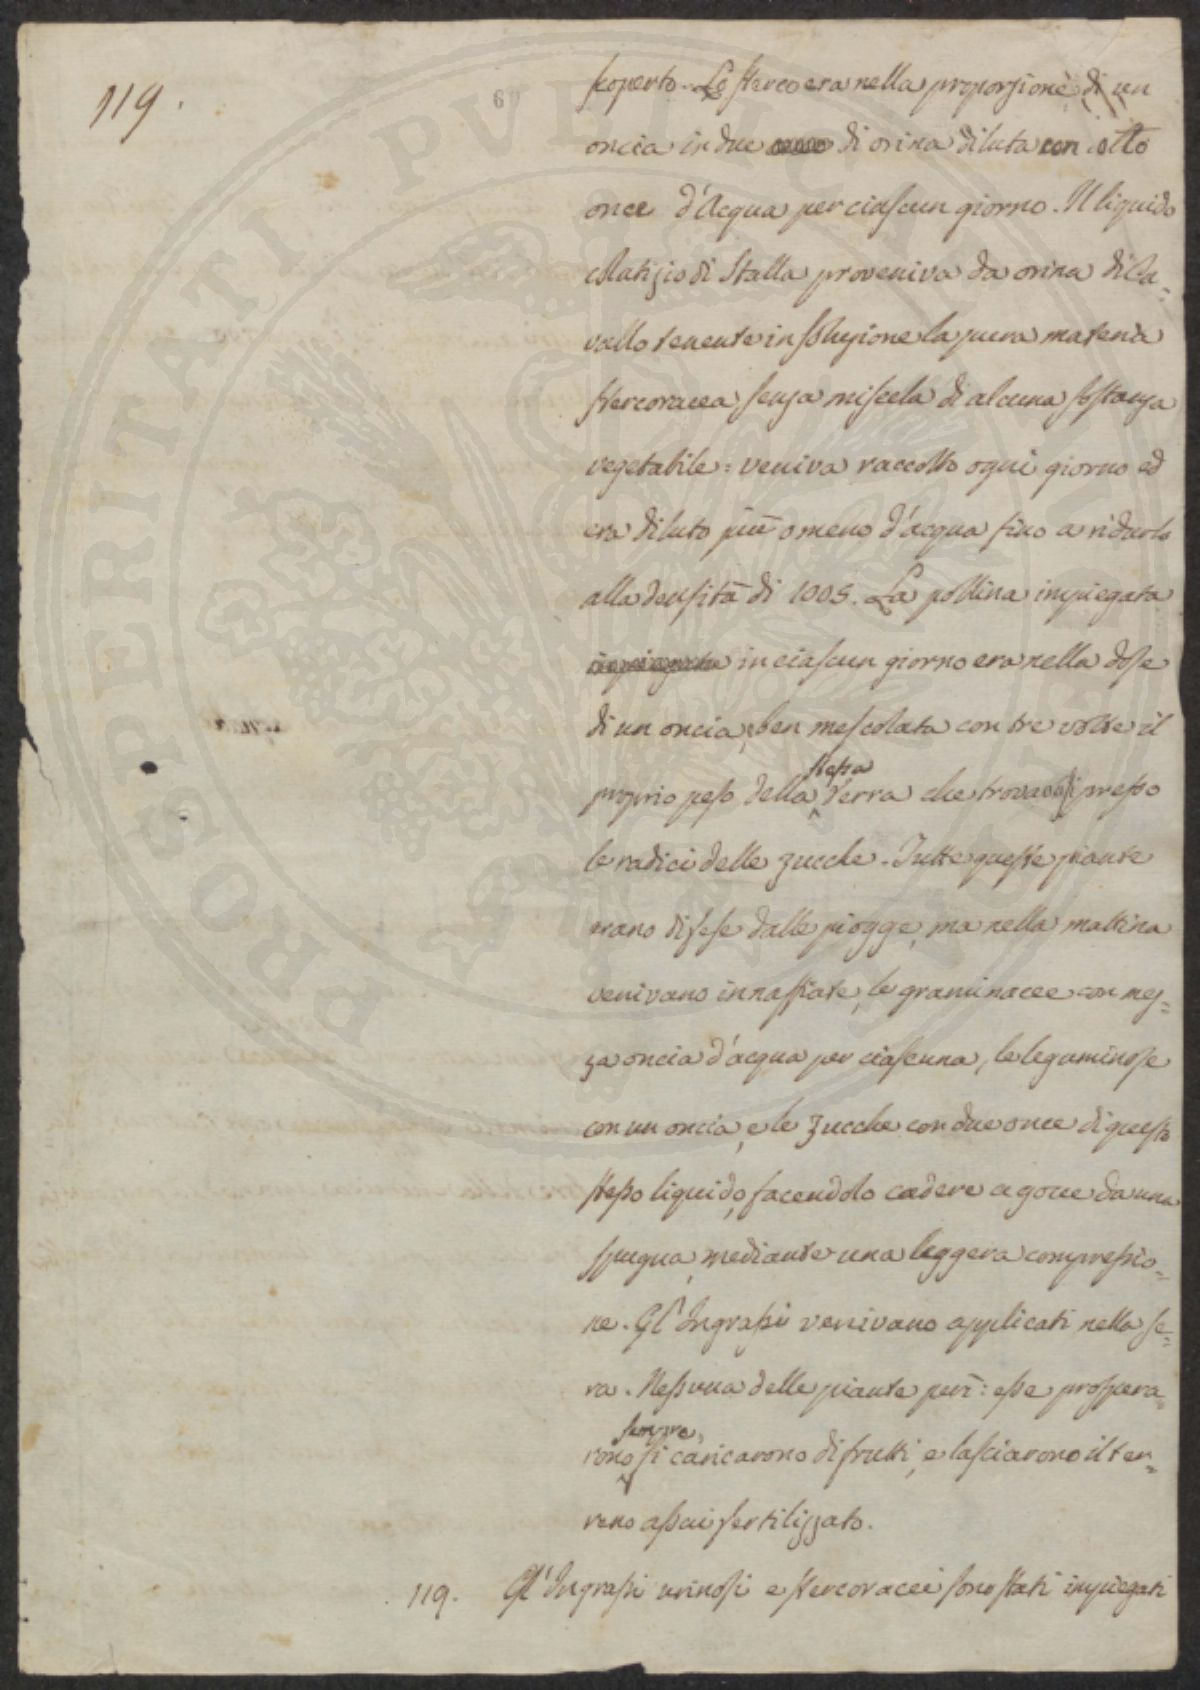 119.
69
scoperto. Lo sterco era nella proporzione di un
oncia in due di orina diluta con otto
once d'Acqua per ciascun giorno. Il liquido
colatizio di Stalla proveniva da orina di Ca=
vallo tenente in soluzione la pura materia
stercoracea senza miscela di alcuna sostanza
vegetabile: veniva raccolto ogni giorno ed
era diluto più o meno d'acqua fino a ridurlo
alla densità di 1005. La pollina impiegata
impiegata in ciascun giorno era nella dose
di un oncia, ben mescolata con tre volte il
stessa
proprio peso della Terra che trovavasi presso
le radici delle zucche. Tutte queste piante
erano difese dalle piogge, ma nella mattina
venivano innaffiate, le graminacee con mez=
za oncia d'acqua per ciascuna, le leguminose
con un oncia, e le zucche con due once di questo
stesso liquido, facendolo cadere a gocce da una
spugna, mediante una leggera compressio=
ne. Gl'Ingrassi venivano applicati nella se=
ra. Nessuna delle piante perì: esse prospera=
sempre,
rono si caricarono di frutti, e lasciarono il ter=
reno assai fertilizzato.
119. Gl'Ingrassi urinosi e stercoracei sono stati impiegati
PROSPERITATI PVBLICAE